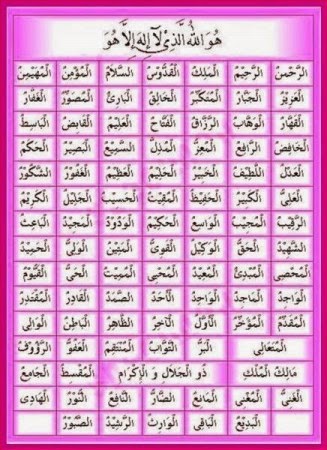 هُوَ اللهُ الَّذِيْ لَآ إِلٰهَ إِلَّا هُوَ
الْرَّحْمٰنُ الْرَّحِيْمُ الْمَلِكُ الْقُدُّوْسُ السَّلَامُ الْمُؤْمِنُ الْمُهَيْمِنُ
الْعَزِيْزُ الْجَبَّارُ الْمُتَكَبِّرُ الْخَالِقُ الْبَارِئُ الْمُصَوِّرُ الْغَفَّارُ
الْقَهَّارُ الْوَهَّابُ الْرَّزَّاقُ الْفَتَّاحُ الْعَلِيْمُ الْقَابِضُ الْبَاسِطُ
الْخَافِضُ الْرَّافِعُ الْمُعِزُّ الْمُذِلُّ السَّمِيْعُ الْبَصِيْرُ الْحَكَمُ
الْعَدْلُ اللَّطِيْفُ الْخَبِيْرُ الْحَلِيْمُ الْعَظِيْمُ الْغَفُوْرُ الشَّكُوْرُ
الْعَلِيُّ الْكَبِيْرُ الْحَفِيْظُ الْمُقِيْتُ الْحَسِيْبُ الْجَلِيْلُ الْكَرِيْمُ
الْرَّقِيْبُ الْمُجِيْبُ الْوَاسِعُ الْحَكِيْمُ الْوَدُوْدُ الْمَجِيْدُ الْبَاعِثُ
الشَّهِيْدُ الْحَقُّ الْوَكِيْلُ الْقَوِيُّ الْمَتِيْنُ الْوَلِيُّ الْحَمِيْدُ
الْمُحْصِي الْمُبْدِئُ الْمُعِيْدُ الْمُحْيِ الْمُمِيْتُ الْحَيُّ الْقَيُّوْمُ
الْوَاجِدُ الْمَاجِدُ الْوَاحِدُ الْأَحَدُ الْصَّمَدُ الْقَادِرُ الْمُقْتَدِرُ
الْمُقَدِّمُ الْمُؤَخِّرُ الْأَوَّلُ الْآخِرُ الْظَّاهِرُ الْبَاطِنُ الْوَالِي
الْمُتَعَالِي الْبَرُّ التَّوَّابُ الْمُنْتَقِمُ الْعَفُوُّ الْرَّؤُوْفُ
مَالِكُ الْمُلْكِ ذُو الْجَلَالِ وَ الْإِكْرَامِ الْمُقْسِطُ الْجَامِعُ
الْغَنِيُّ الْمُغْنِي الْمَانِعُ الْضَّارُّ النَّافِعُ النُّوْرُ الْهَادِي
الْبَدِيْعُ الْبَاقِي الْوَارِثُ الْرَّشِيْدُ الْصَّبُوْرُ